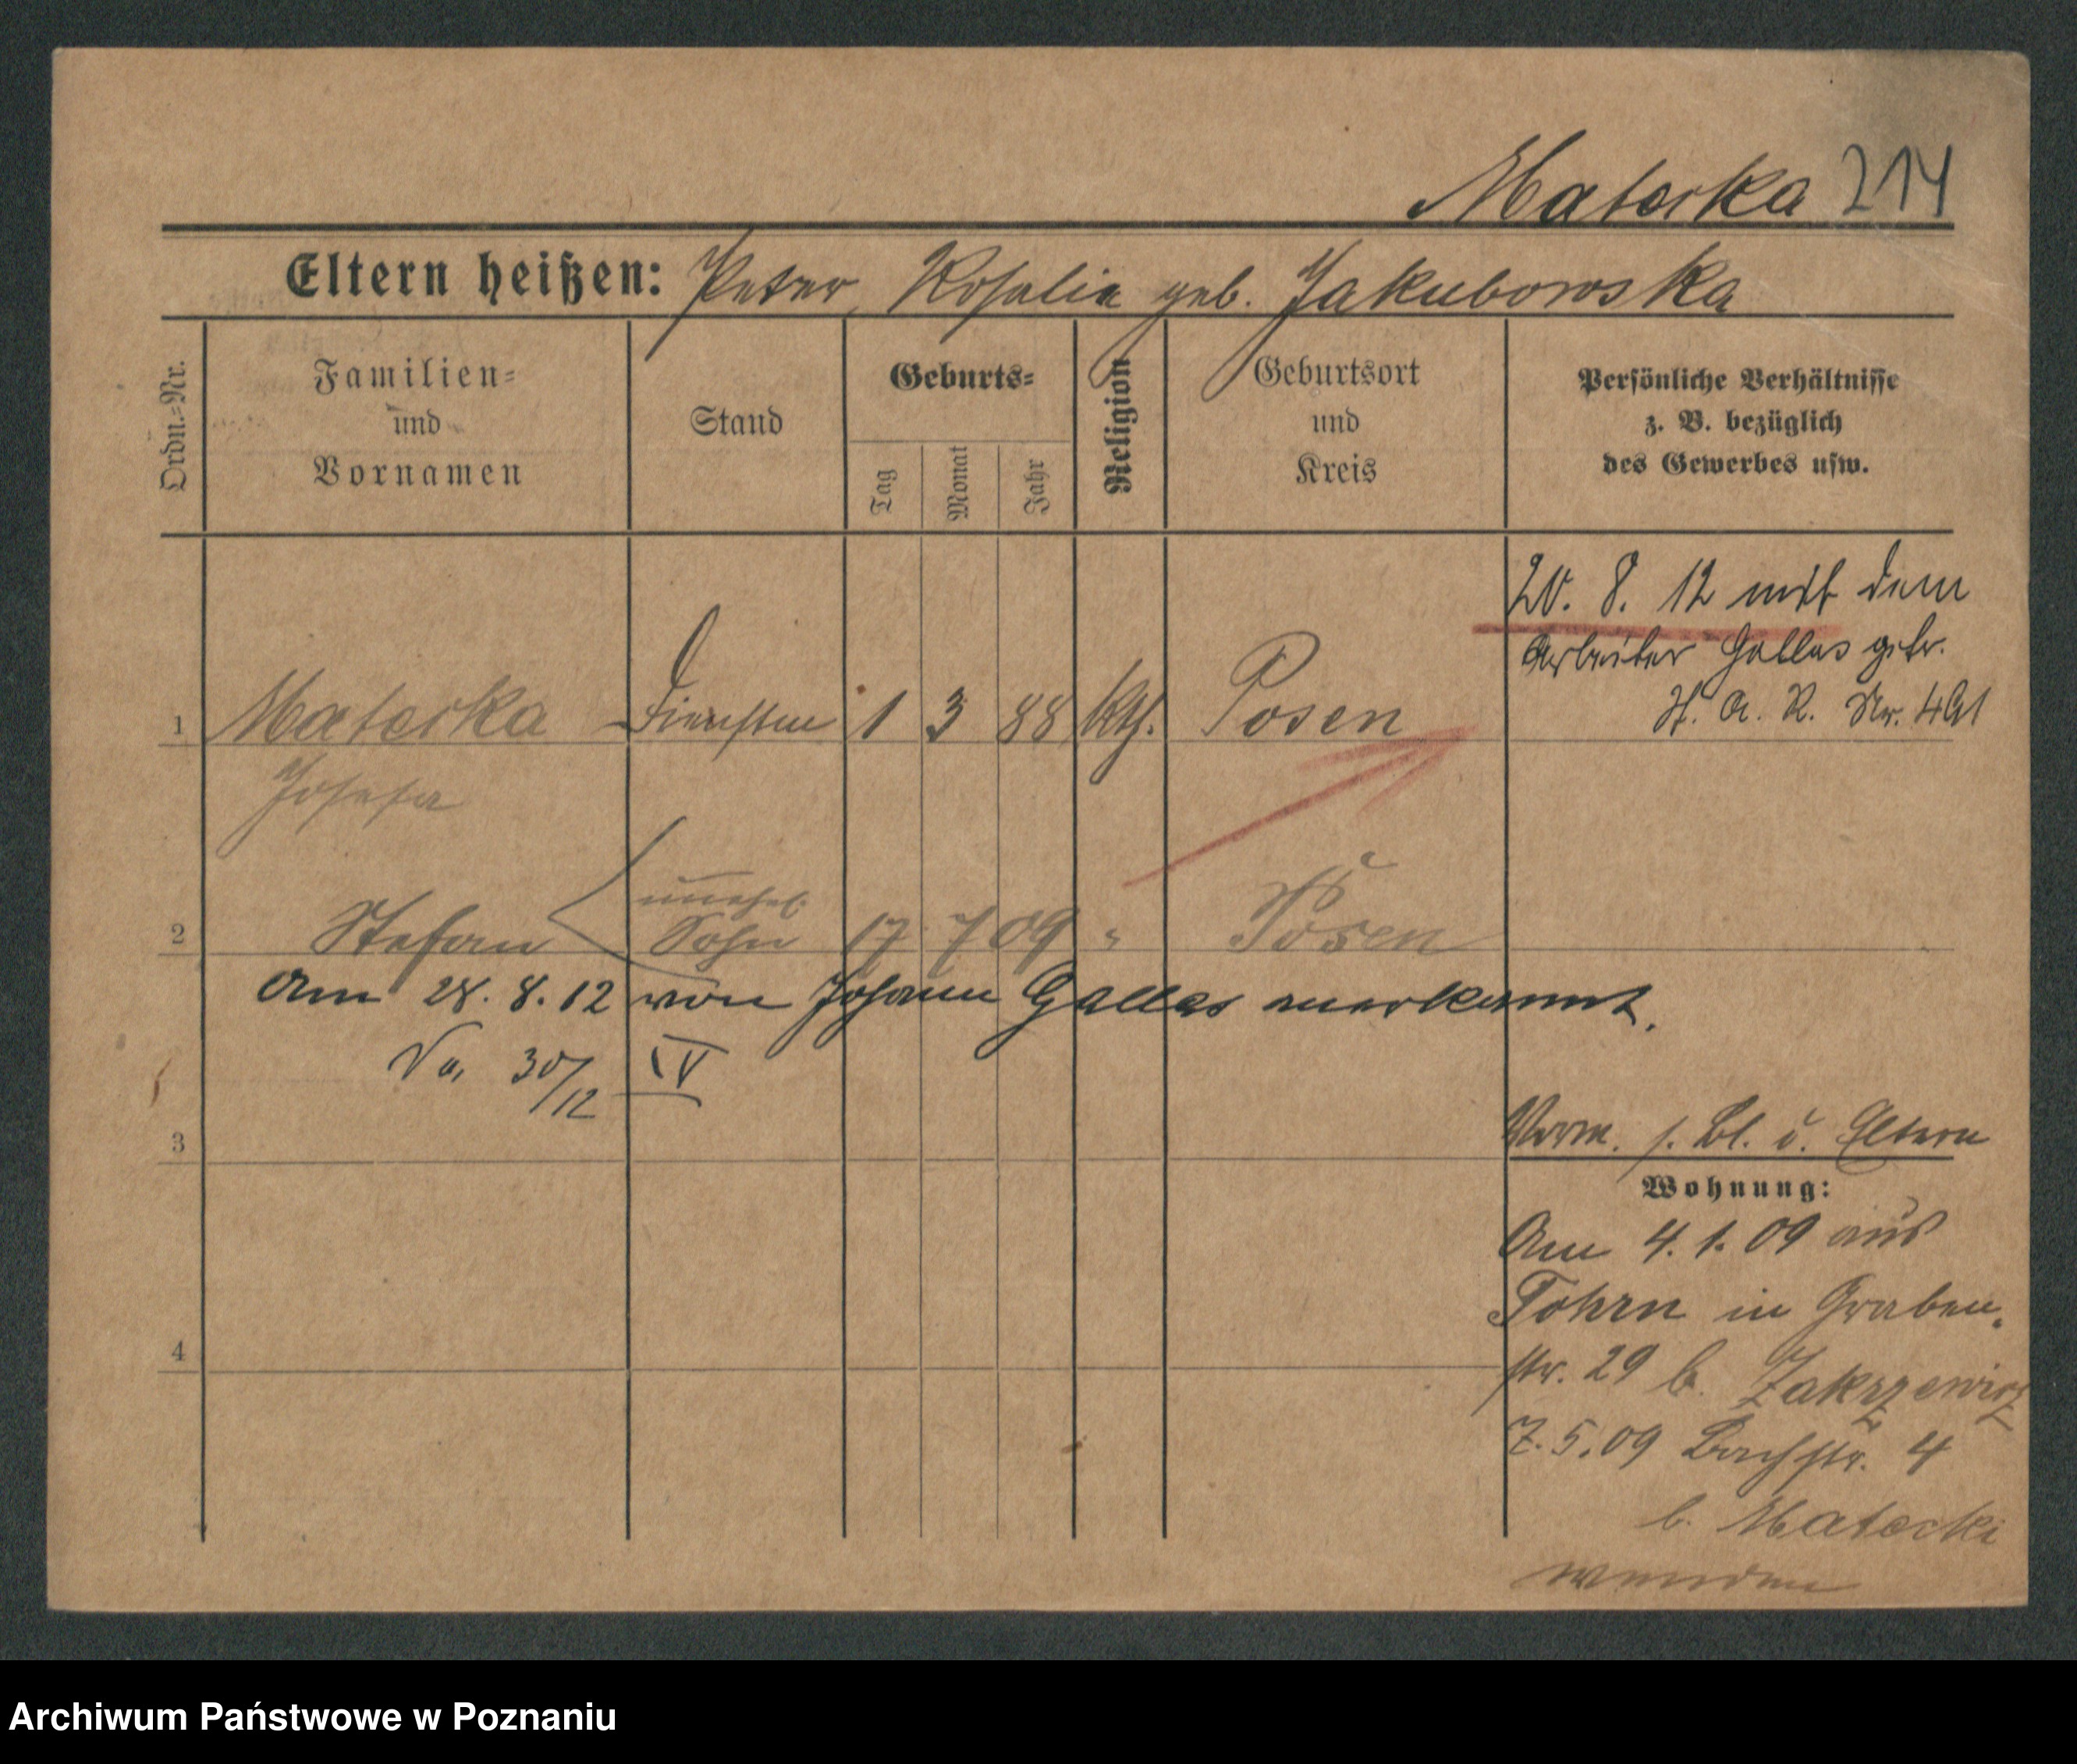 Matecka 214
Eltern heißen: Peter, Rosalie geb. Jakubowska
Ordn.=Nr.
Familien=
und
Vornamen
Stand
Geburts=
Tag
Monat
Jahr
Religion
Geburtsort
und
Kreis
Persönliche Verhältnisse
z. B. bezüglich
des Gewerbes usw.
20. 8. 12 mit dem
Arbeiter Gallas getr.
H. A. R. Nr. 491
1 Matecka Dienstm 1 3 88 kth. Posen
Josefa
unehel.
2 Stefan Sohn 17 7 09 " Posen
Am 28. 8. 12 von Johann Gallas anerkannt.
30/12 IV
3
Verm. s. Bl. d. Eltern
Wohnung:
Am 4. 1. 09 aus
in Graben-
4
str. 29 b. Zakrzewicz
7. 5. 09 Bachstr. 4
b. Matecki
wenden
Archiwum Państwowe w Poznaniu